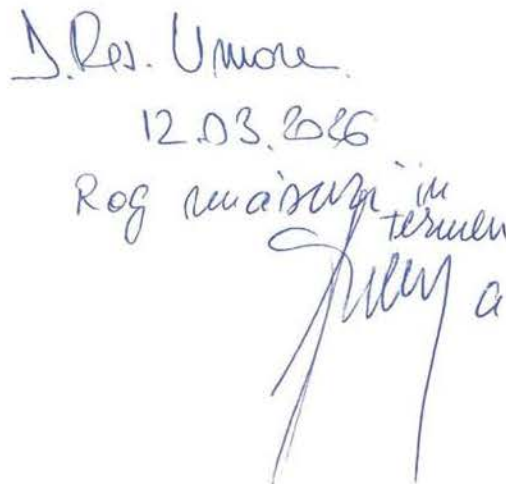 D. Res. Umane
12.03.2026
Rog măsuri in
termen